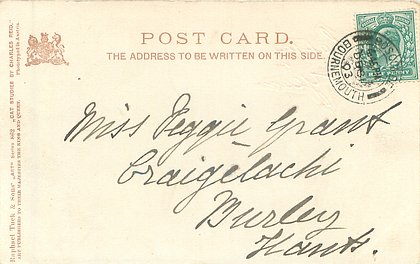 POST CARD.
THE ADDRESS TO BE WRITTEN ON THIS SIDE.
Miss Peggie Grant
Craigelachi
Burley
Hants.
Raphael Tuck & Sons' "Art" Series 862 "CAT STUDIES BY CHARLES REID.
ART PUBLISHERS TO THEIR MAJESTIES THE KING AND QUEEN.